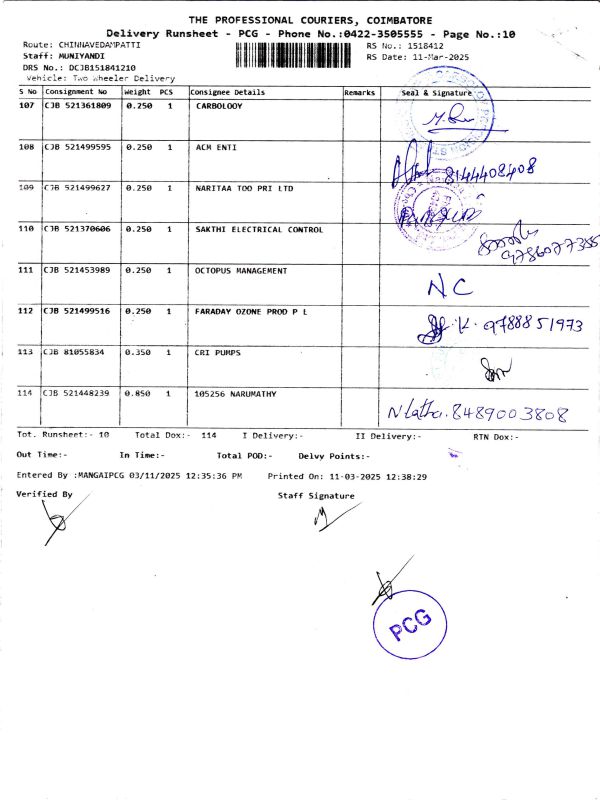 THE PROFESSIONAL COURIERS, COIMBATORE
Delivery Runsheet - PCG - Phone No.:0422-3505555 - Page No.:10
Route: CHINNAVEDAMPATTI RS No.: 1518412
Staff: MUNIYANDI RS Date: 11-Mar-2025
DRS No.: DCJB151841210
Vehicle: Two Wheeler Delivery
S No Consignment No Weight PCS Consignee Details Remarks Seal & Signature
107 CJB 521361809 0.250 1 CARBOLOOY
108 CJB 521499595 0.250 1 ACM ENTI 8144408408
109 CJB 521499627 0.250 1 NARITAA TOO PRI LTD
110 CJB 521370606 0.250 1 SAKTHI ELECTRICAL CONTROL
111 CJB 521453989 0.250 1 OCTOPUS MANAGEMENT NC
112 CJB 521499516 0.250 1 FARADAY OZONE PROD P L K. 9788851973
113 CJB 81055834 0.350 1 CRI PUMPS
114 CJB 521448239 0.850 1 105256 NARUMATHY N latha. 8489003808
Tot. Runsheet:- 10 Total Dox:- 114 I Delivery:- II Delivery:- RTN Dox:-
Out Time:- In Time:- Total POD:- Delvy Points:-
Entered By :MANGAIPCG 03/11/2025 12:35:36 PM Printed On: 11-03-2025 12:38:29
Verified By Staff Signature
PCG